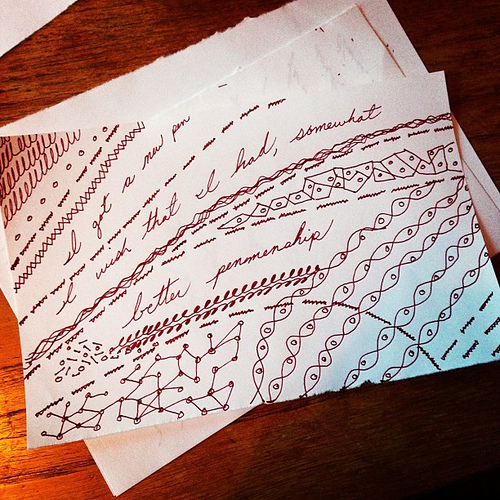 I got a new pen
I wish that I had, somewhat
better penmenship